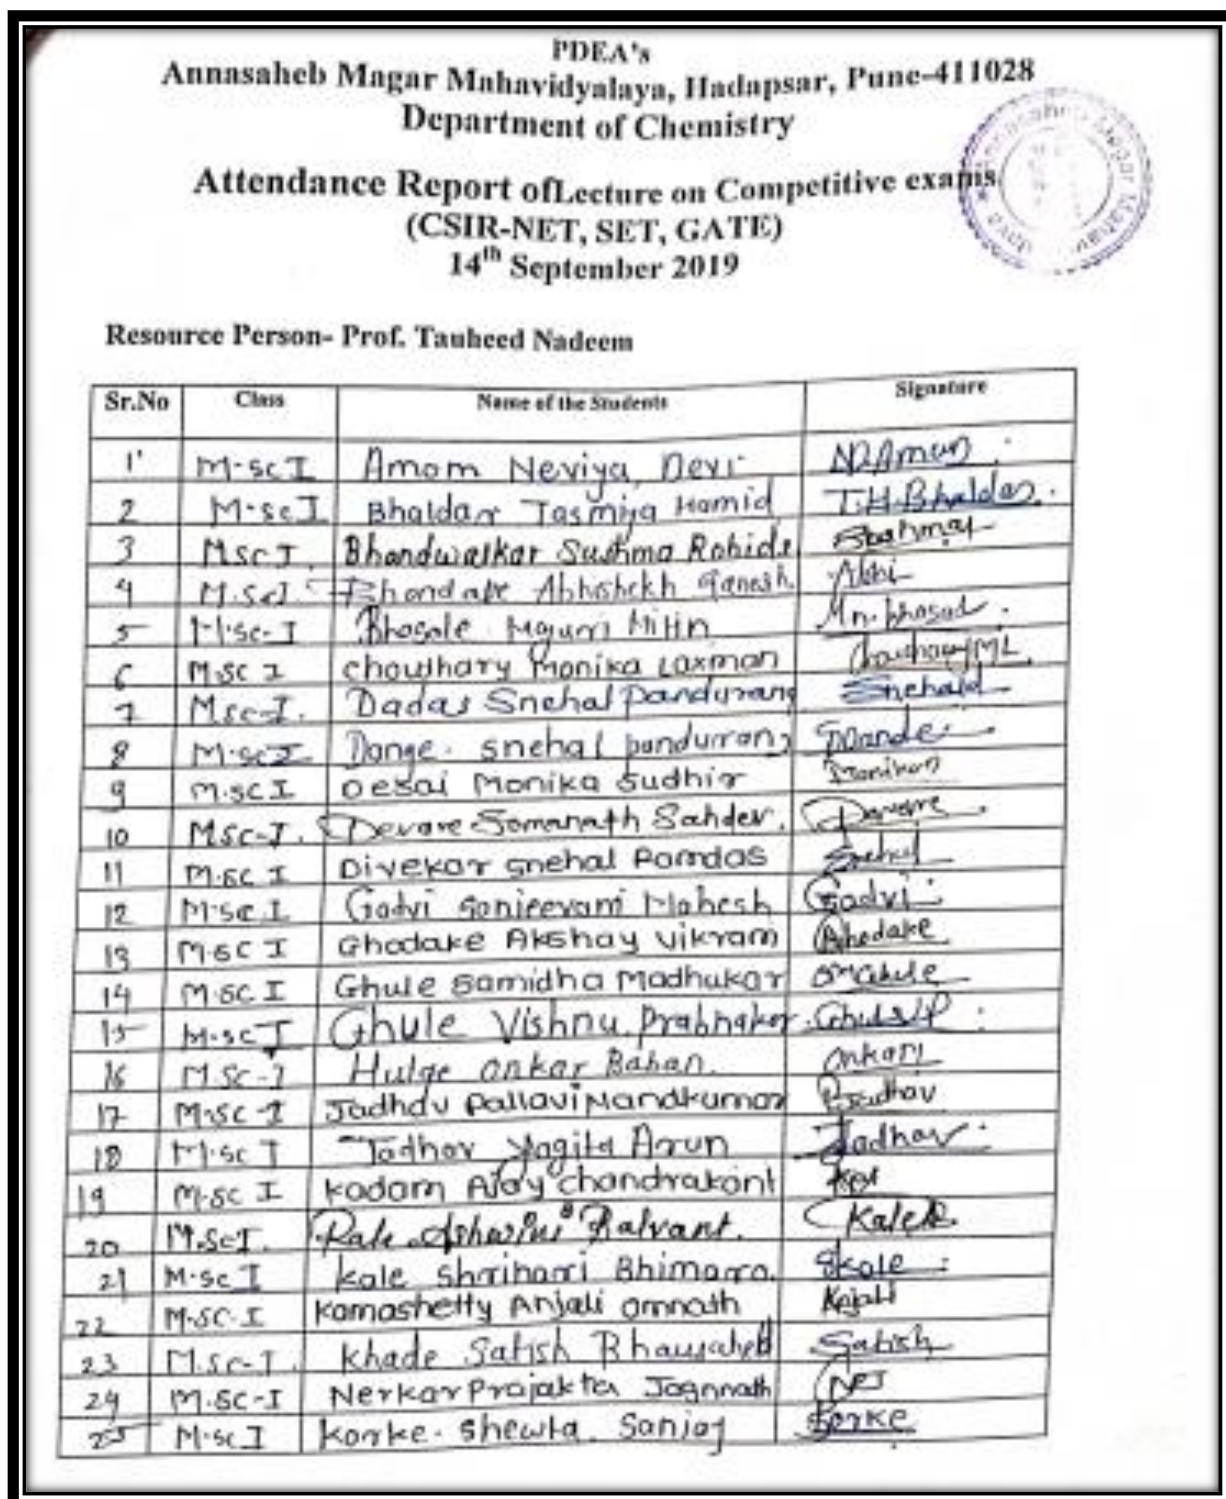 PDEA's
Annasaheb Magar Mahavidyalaya, Hadapsar, Pune-411028
Department of Chemistry
Attendance Report ofLecture on Competitive exams
(CSIR-NET, SET, GATE)
14th September 2019
Resource Person- Prof. Tauheed Nadeem
Sr.No Class Name of the Students Signature
1 M.sc I Amom Neviya Devi
2 M.sc I Bhaldar Tasmiya Hamid T.H.Bhaldar
3 M.sc I. Bhandwalkar Sushma Rohidas
4 M.sc I. Abhishekh Ganesh Abhi
5 M.sc-I Bhosale Mayuri Nitin
6 M.sc I choudhary Monika Laxman ChoudharyML
7 M.sc-I. Dadas Snehal pandurang Snehal
8 M.sc I Dange. snehal pandurrang
9 M.sc I Desai Monika Sudhir
10 MSC-I. Devare Somanath Sahdev. Devare
11 M.sc I Divekar snehal Ramdas Snehal
12 M.sc I Gadvi sanjeevani Mahesh Gadvi
13 M.sc I Ghodake Akshay vikram Ghodake
14 M.sc I Ghule samidha Madhukar
15 M.sc I Ghule Vishnu Prabhakar
16 M.sc-I Hulge onkar Baban.
17 M.sc-I Jadhav Pallavi Nandkumar
18 M.sc I Jadhav Yogita Arun Jadhav
19 M.sc I kadam Ajay chandrakant
20 M.sc I. Kale Ashwini Balvant.
21 M.sc I kale shrihari Bhimarao. Skale
22 M.SC-I kamashetty Anjali omnath Anjali
23 M.sc-I. khade Satish Bhausaheb Satish
24 M.sc-I Nerkar Prajakta Jagnnath
25 M.sc I korke. shewta. Sanjay